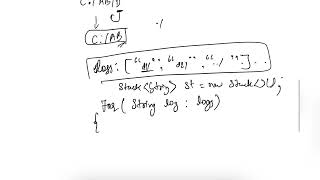 C:/AB/D
C:/AB
logs: [ "d1", "d2", "../" ] ..
Stack<String> st = new Stack<>();
For( String log : logs)
{